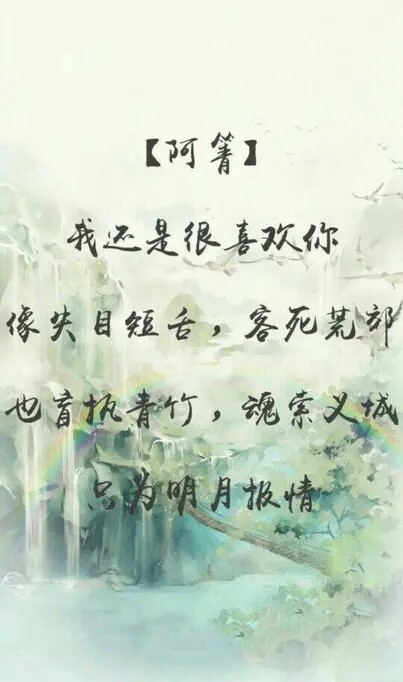 【阿箐】
我还是很喜欢你
像失目短舌，客死荒郊
也盲执青竹，魂索义城
只为明月报情